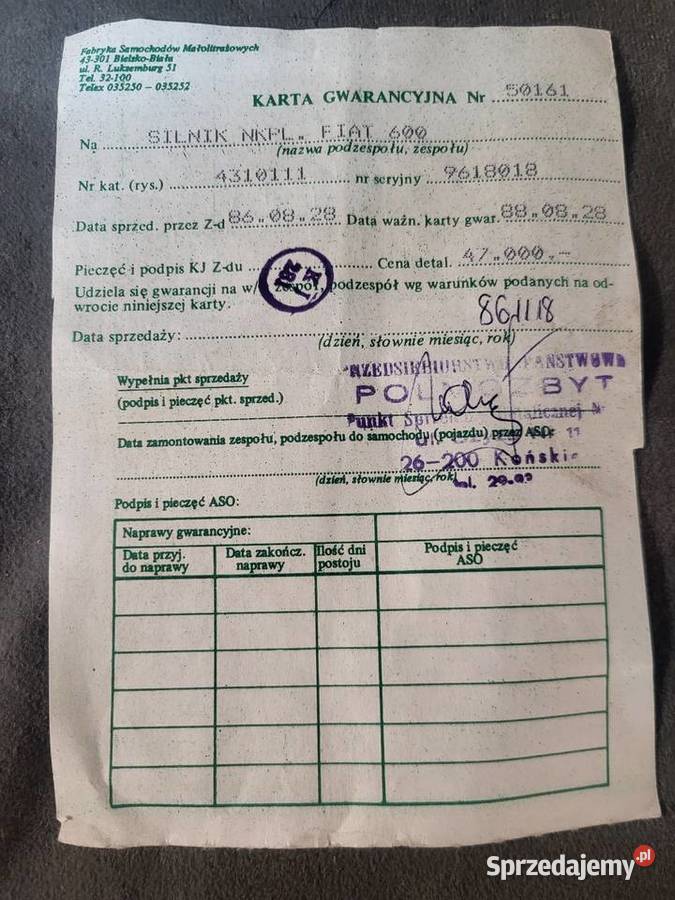 Fabryka Samochodów Małolitrażowych
43-301 Bielsko-Biała
ul. R. Luksemburg 51
Tel. 32-100
Telex 035250 – 035252
KARTA GWARANCYJNA Nr 50161
Na SILNIK NKPL. FIAT 600
(nazwa podzespołu, zespołu)
Nr kat. (rys.) 4310111 nr seryjny 9618018
Data sprzed. przez Z-d 86.08.28 Data ważn. karty gwar. 88.08.28
Pieczęć i podpis KJ Z-du Cena detal. 47.000,-
Udziela się gwarancji na w/ zespół, podzespół wg warunków podanych na od-
wrocie niniejszej karty.
861118
Data sprzedaży:
(dzień, słownie miesiąc, rok)
PAŃSTWOWE
Wypełnia pkt sprzedaży
POLMOZBYT
(podpis i pieczęć pkt. sprzed.)
Punkt
Data zamontowania zespołu, podzespołu do samochodu (pojazdu) przez ASO:
11
26-200 Końskie
(dzień, słownie miesiąc, rok)
Podpis i pieczęć ASO:
Naprawy gwarancyjne:
Data przyj. do naprawy
Data zakończ. naprawy
Ilość dni postoju
Podpis i pieczęć ASO
Sprzedajemy.pl